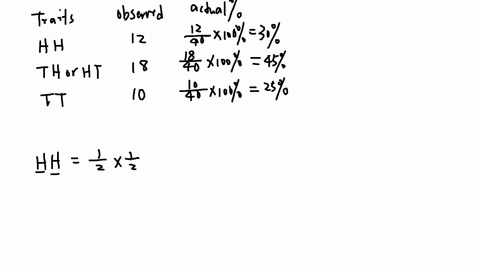 Traits observed actual %
HH 12 12/40 ×100%=30%
TH or HT 18 18/40 ×100% = 45%
TT 10 10/40 ×100% = 25%
HH = 1/2 × 1/2